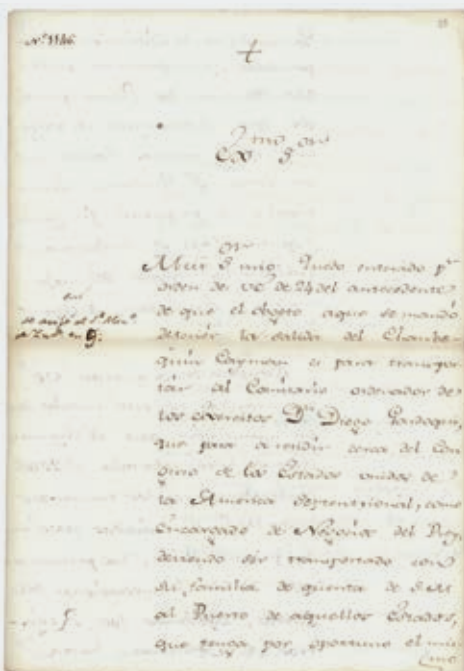 Nº 1146.
Exmo. Sor.
Muy Sr. mio. Quedo enterado pr.
orden de VE de 24 del antecedente
de que el objeto a que se mandó
detener la salida del Chambe-
quin Cayman es para transpor-
tar al Comisario ordenador de
los Exercitos Dn. Diego Gardoqui,
que para a residir cerca del Con-
greso de los Estados unidos de
la America septentrional, como
Encargado de Negocios del Rey,
deviendo ser transportado con
su familia de quenta de S.M.
al Puerto de aquellos Estados,
que tenga por oportuno el mis-
mo